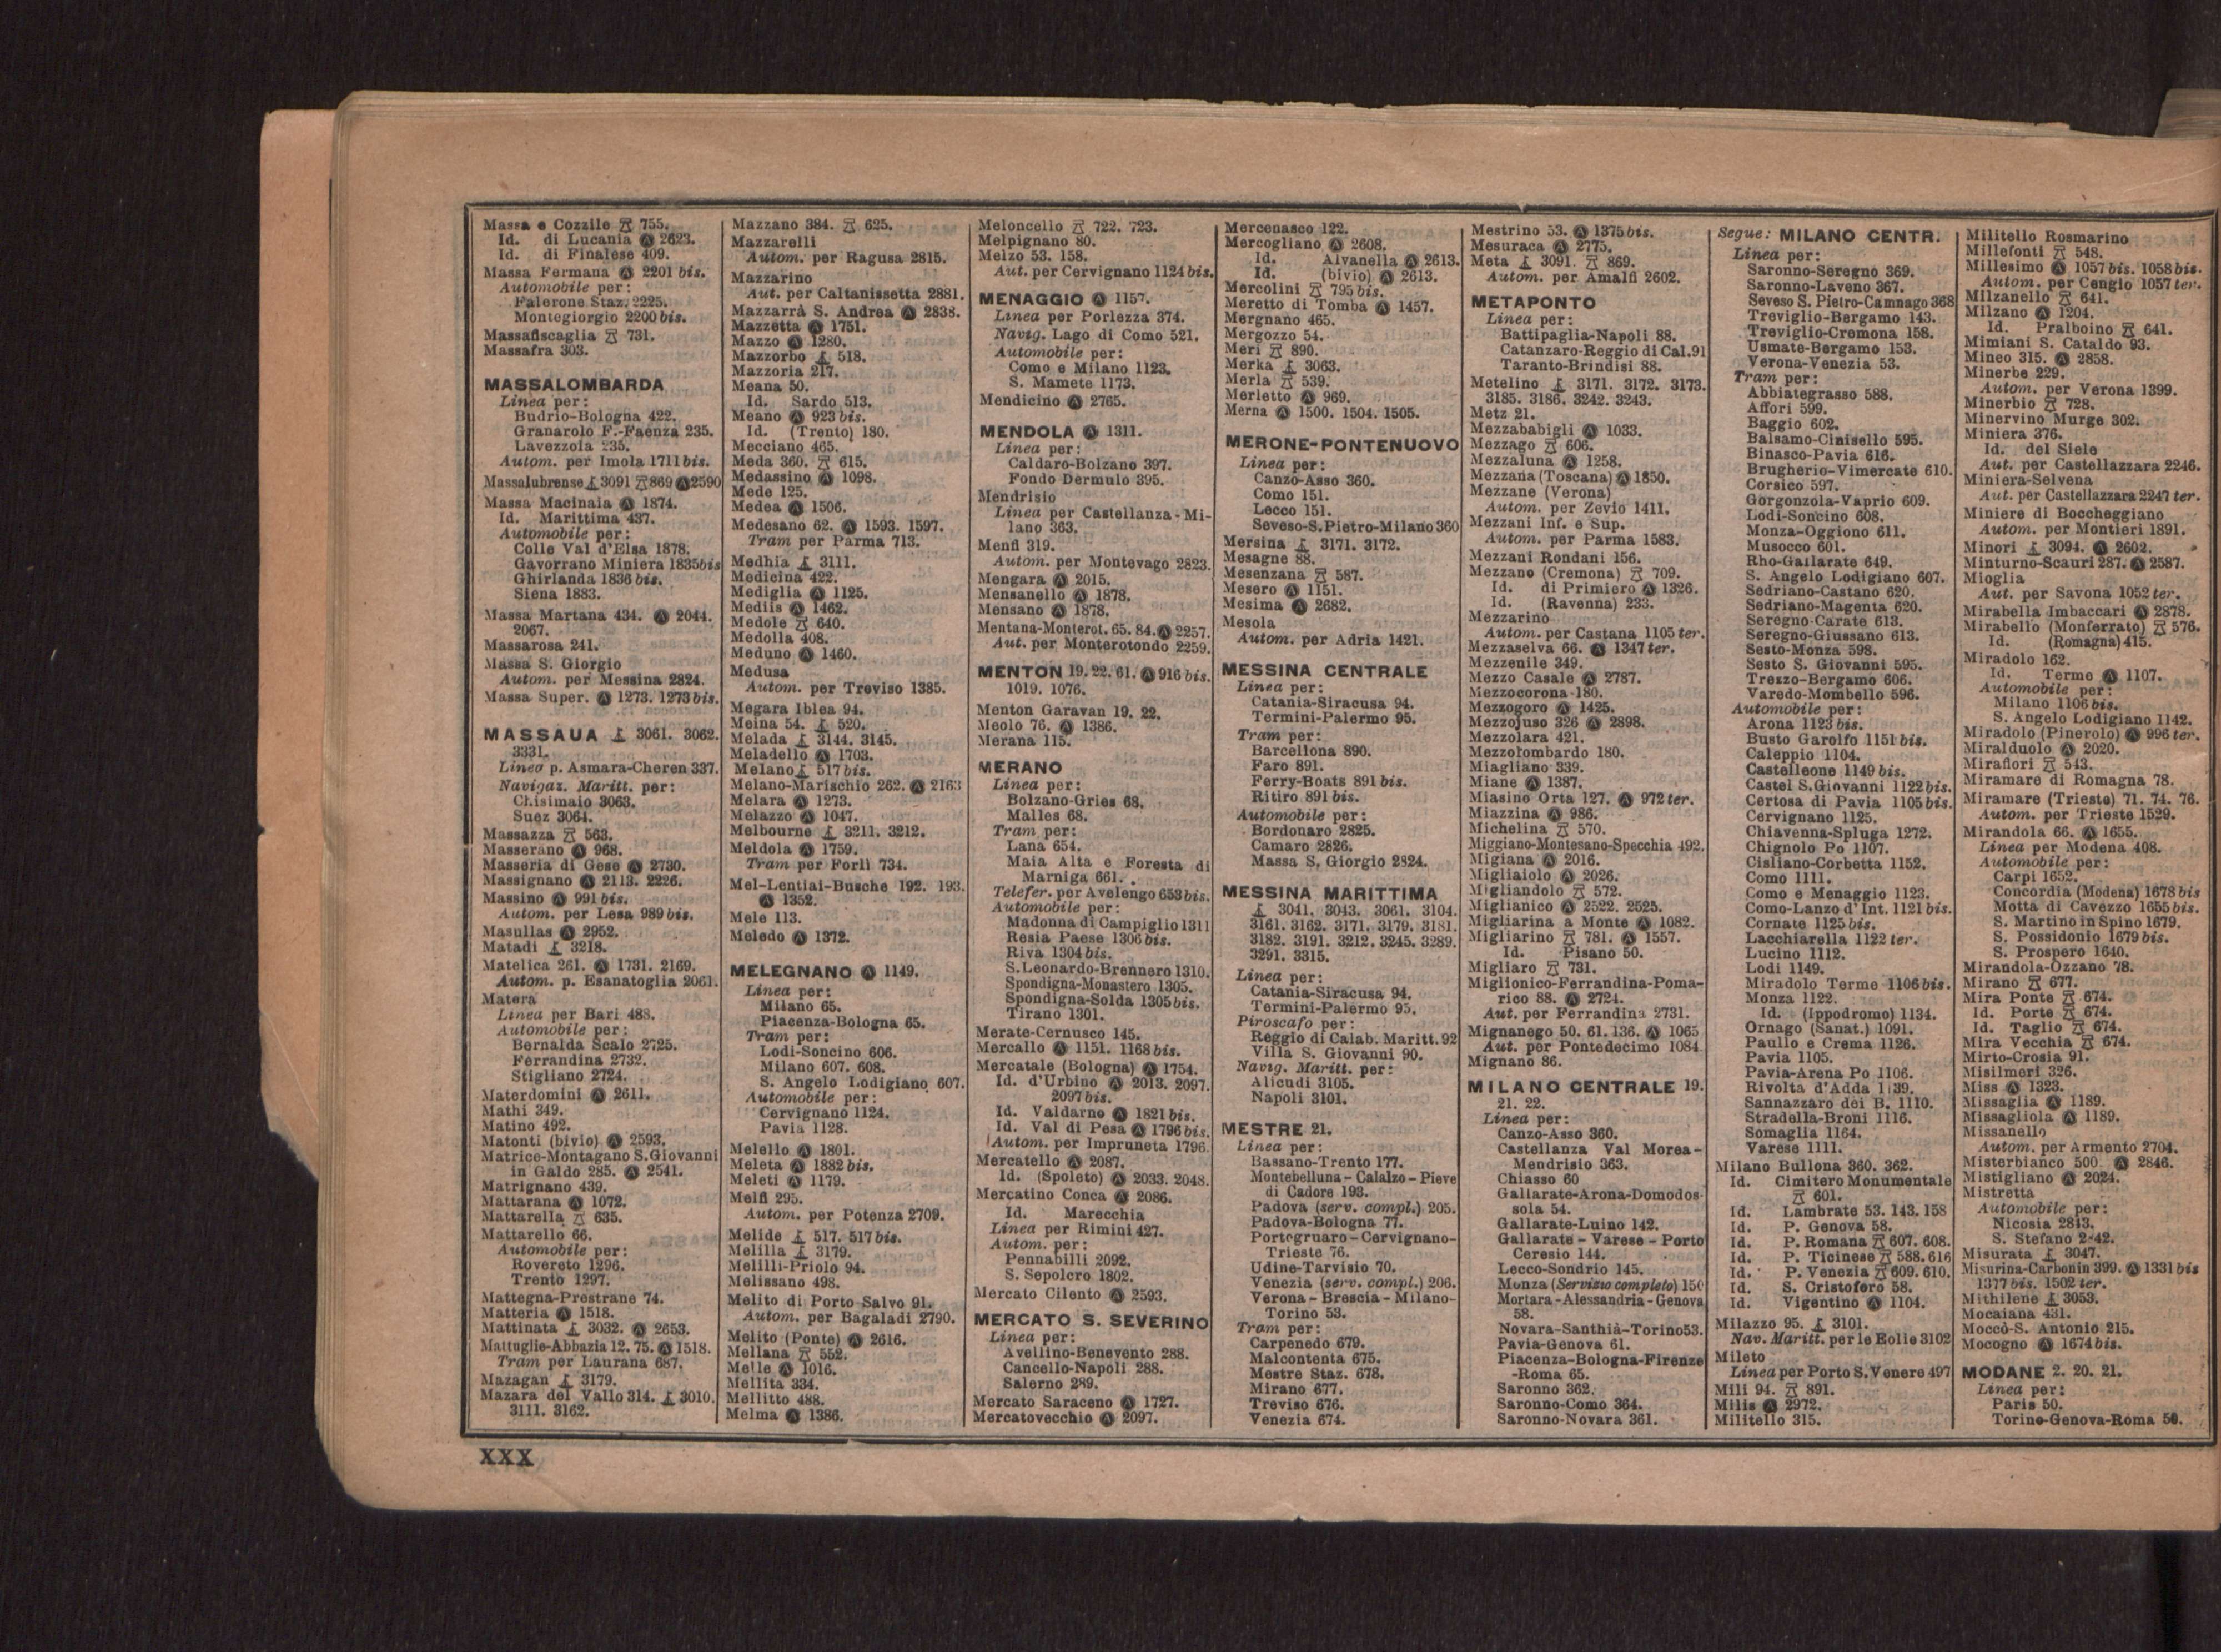 Massa e Cozzile 755.
Id. di Lucania Ⓐ 2623.
Id. di Finalese 409.
Massa Fermana Ⓐ 2201 bis.
Automobile per:
Falerone Staz. 2225.
Montegiorgio 2200 bis.
Massafiscaglia 731.
Massafra 303.
MASSALOMBARDA
Linea per:
Budrio-Bologna 422.
Granarolo F.-Faenza 235.
Lavezzola 235.
Autom. per Imola 1711 bis.
Massalubrense 3091 869 Ⓐ 2590
Massa Macinaia Ⓐ 1874.
Id. Marittima 437.
Automobile per:
Colle Val d'Elsa 1878.
Gavorrano Miniera 1835 bis
Ghirlanda 1836 bis.
Siena 1883.
Massa Martana 434. Ⓐ 2044.
2067.
Massarosa 241.
Massa S. Giorgio
Autom. per Messina 2824.
Massa Super. Ⓐ 1273. 1273 bis.
MASSAUA 3061. 3062.
3331.
Linea p. Asmara-Cheren 337.
Navigaz. Maritt. per:
Chisimaio 3063.
Suez 3064.
Massazza 563.
Masserano Ⓐ 968.
Masseria di Gese Ⓐ 2730.
Massignano Ⓐ 2113. 2226.
Massino Ⓐ 991 bis.
Autom. per Lesa 989 bis.
Masullas Ⓐ 2952.
Matadi 3218.
Matelica 261. Ⓐ 1731. 2169.
Autom. p. Esanatoglia 2061.
Matera
Linea per Bari 488.
Automobile per:
Bernalda Scalo 2725.
Ferrandina 2732.
Stigliano 2724.
Materdomini Ⓐ 2611.
Mathi 349.
Matino 492.
Matonti (bivio) Ⓐ 2593.
Matrice-Montagano S.Giovanni
in Galdo 285. Ⓐ 2541.
Matrignano 439.
Mattarana Ⓐ 1072.
Mattarella 635.
Mattarello 66.
Automobile per:
Rovereto 1296.
Trento 1297.
Mattegna-Prestrane 74.
Matteria Ⓐ 1518.
Mattinata 3032. Ⓐ 2653.
Mattuglie-Abbazia 12. 75. Ⓐ 1518.
Tram per Laurana 687.
Mazagan 3179.
Mazara del Vallo 314. 3010.
3111. 3162.
Mazzano 384. 625.
Mazzarelli
Autom. per Ragusa 2815.
Mazzarino
Aut. per Caltanissetta 2881.
Mazzarrà S. Andrea Ⓐ 2838.
Mazzetta Ⓐ 1751.
Mazzo Ⓐ 1280.
Mazzorbo 518.
Mazzoria 217.
Meana 50.
Id. Sardo 513.
Meano Ⓐ 923 bis.
Id. (Trento) 180.
Mecciano 465.
Meda 360. 615.
Medassino Ⓐ 1098.
Mede 125.
Medea Ⓐ 1506.
Medesano 62. Ⓐ 1593. 1597.
Tram per Parma 713.
Medhia 3111.
Medicina 422.
Mediglia Ⓐ 1125.
Mediis Ⓐ 1462.
Medole 640.
Medolla 408.
Meduno Ⓐ 1460.
Medusa
Autom. per Treviso 1385.
Megara Iblea 94.
Meina 54. 520.
Melada 3144. 3145.
Meladello Ⓐ 1703.
Melano 517 bis.
Melano-Marischio 262. Ⓐ 2163
Melara Ⓐ 1273.
Melazzo Ⓐ 1047.
Melbourne 3211. 3212.
Meldola Ⓐ 1759.
Tram per Forlì 734.
Mel-Lentiai-Busche 192. 193.
Ⓐ 1352.
Mele 113.
Meledo Ⓐ 1372.
MELEGNANO Ⓐ 1149.
Linea per:
Milano 65.
Piacenza-Bologna 65.
Tram per:
Lodi-Soncino 606.
Milano 607. 608.
S. Angelo Lodigiano 607.
Automobile per:
Cervignano 1124.
Pavia 1128.
Melello Ⓐ 1801.
Meleta Ⓐ 1882 bis.
Meleti Ⓐ 1179.
Melfi 295.
Autom. per Potenza 2709.
Melide 517. 517 bis.
Melilla 3179.
Melilli-Priolo 94.
Melissano 498.
Melito di Porto Salvo 91.
Autom. per Bagaladi 2790.
Melito (Ponte) Ⓐ 2616.
Mellana 552.
Melle Ⓐ 1016.
Mellita 334.
Mellitto 488.
Melma Ⓐ 1386.
Meloncello 722. 723.
Melpignano 80.
Melzo 53. 158.
Aut. per Cervignano 1124 bis.
MENAGGIO Ⓐ 1157.
Linea per Porlezza 374.
Navig. Lago di Como 521.
Automobile per:
Como e Milano 1123.
S. Mamete 1173.
Mendicino Ⓐ 2765.
MENDOLA Ⓐ 1311.
Linea per:
Caldaro-Bolzano 397.
Fondo Dermulo 395.
Mendrisio
Linea per Castellanza-Mi-
lano 363.
Menfi 319.
Autom. per Montevago 2823.
Mengara Ⓐ 2015.
Mensanello Ⓐ 1878.
Mensano Ⓐ 1878.
Mentana-Monterot. 65. 84. Ⓐ 2257.
Aut. per Monterotondo 2259.
MENTON 19. 22. 61. Ⓐ 916 bis.
1019. 1076.
Menton Garavan 19. 22.
Meolo 76. Ⓐ 1386.
Merana 115.
MERANO
Linea per:
Bolzano-Gries 68.
Malles 68.
Tram per:
Lana 654.
Maia Alta e Foresta di
Marniga 661.
Telefer. per Avelengo 653 bis.
Automobile per:
Madonna di Campiglio 1311
Resia Paese 1306 bis.
Riva 1304 bis.
S.Leonardo-Brennero 1310.
Spondigna-Monastero 1305.
Spondigna-Solda 1305 bis.
Tirano 1301.
Merate-Cernusco 145.
Mercallo Ⓐ 1151. 1168 bis.
Mercatale (Bologna) Ⓐ 1754.
Id. d'Urbino Ⓐ 2013. 2097.
2097 bis.
Id. Valdarno Ⓐ 1821 bis.
Id. Val di Pesa Ⓐ 1796 bis.
Autom. per Impruneta 1796.
Mercatello Ⓐ 2087.
Id. (Spoleto) Ⓐ 2033. 2048.
Mercatino Conca Ⓐ 2086.
Id. Marecchia
Linea per Rimini 427.
Autom. per:
Pennabilli 2092.
S. Sepolcro 1802.
Mercato Cilento Ⓐ 2593.
MERCATO S. SEVERINO
Linea per:
Avellino-Benevento 288.
Cancello-Napoli 288.
Salerno 289.
Mercato Saraceno Ⓐ 1727.
Mercatovecchio Ⓐ 2097.
Mercenasco 122.
Mercogliano Ⓐ 2608.
Id. Alvanella Ⓐ 2613.
Id. (bivio) Ⓐ 2613.
Mercolini 795 bis.
Meretto di Tomba Ⓐ 1457.
Mergnano 465.
Mergozzo 54.
Meri 890.
Merka 3063.
Merla 539.
Merletto Ⓐ 969.
Merna Ⓐ 1500. 1504. 1505.
MERONE-PONTENUOVO
Linea per:
Canzo-Asso 360.
Como 151.
Lecco 151.
Seveso-S.Pietro-Milano 360
Mersina 3171. 3172.
Mesagne 88.
Mesenzana 587.
Mesero Ⓐ 1151.
Mesima Ⓐ 2682.
Mesola
Autom. per Adria 1421.
MESSINA CENTRALE
Linea per:
Catania-Siracusa 94.
Termini-Palermo 95.
Tram per:
Barcellona 890.
Faro 891.
Ferry-Boats 891 bis.
Ritiro 891 bis.
Automobile per:
Bordonaro 2825.
Camaro 2826.
Massa S. Giorgio 2824.
MESSINA MARITTIMA
3041. 3043. 3061. 3104.
3161. 3162. 3171. 3179. 3181.
3182. 3191. 3212. 3245. 3289.
3291. 3315.
Linea per:
Catania-Siracusa 94.
Termini-Palermo 95.
Piroscafo per:
Reggio di Calab. Maritt. 92
Villa S. Giovanni 90.
Navig. Maritt. per:
Alicudi 3105.
Napoli 3101.
MESTRE 21.
Linea per:
Bassano-Trento 177.
Montebelluna-Calalzo-Pieve
di Cadore 193.
Padova (serv. compl.) 205.
Padova-Bologna 77.
Portogruaro-Cervignano-
Trieste 76.
Udine-Tarvisio 70.
Venezia (serv. compl.) 206.
Verona-Brescia-Milano-
Torino 53.
Tram per:
Carpenedo 679.
Malcontenta 675.
Mestre Staz. 678.
Mirano 677.
Treviso 676.
Venezia 674.
Mestrino 53. Ⓐ 1375 bis.
Mesuraca Ⓐ 2775.
Meta 3091. 869.
Autom. per Amalfi 2602.
METAPONTO
Linea per:
Battipaglia-Napoli 88.
Catanzaro-Reggio di Cal. 91
Taranto-Brindisi 88.
Metelino 3171. 3172. 3173.
3185. 3186. 3242. 3243.
Metz 21.
Mezzababigli Ⓐ 1033.
Mezzago 606.
Mezzaluna Ⓐ 1258.
Mezzana (Toscana) Ⓐ 1850.
Mezzane (Verona)
Autom. per Zevio 1411.
Mezzani Inf. e Sup.
Autom. per Parma 1583.
Mezzani Rondani 156.
Mezzano (Cremona) 709.
Id. di Primiero Ⓐ 1326.
Id. (Ravenna) 233.
Mezzarino
Autom. per Castana 1105 ter.
Mezzaselva 66. Ⓐ 1347 ter.
Mezzenile 349.
Mezzo Casale Ⓐ 2787.
Mezzocorona 180.
Mezzogoro Ⓐ 1425.
Mezzojuso 326 Ⓐ 2898.
Mezzolara 421.
Mezzolombardo 180.
Miagliano 339.
Miane Ⓐ 1387.
Miasino Orta 127. Ⓐ 972 ter.
Miazzina Ⓐ 986.
Michelina 570.
Miggiano-Montesano-Specchia 492.
Migiana Ⓐ 2016.
Migliaiolo Ⓐ 2026.
Migliandolo 572.
Miglianico Ⓐ 2522. 2525.
Migliarina a Monte Ⓐ 1082.
Migliarino 781. Ⓐ 1557.
Id. Pisano 50.
Migliaro 731.
Miglionico-Ferrandina-Poma-
rico 88. Ⓐ 2724.
Aut. per Ferrandina 2731.
Mignanego 50. 61. 136. Ⓐ 1065
Aut. per Pontedecimo 1084
Mignano 86.
MILANO CENTRALE 19.
21. 22.
Linea per:
Canzo-Asso 360.
Castellanza Val Morea-
Mendrisio 363.
Chiasso 60
Gallarate-Arona-Domodos-
sola 54.
Gallarate-Luino 142.
Gallarate-Varese-Porto
Ceresio 144.
Lecco-Sondrio 145.
Monza (Servizio completo) 150
Mortara-Alessandria-Genova
58.
Novara-Santhià-Torino 53.
Pavia-Genova 61.
Piacenza-Bologna-Firenze
-Roma 65.
Saronno 362.
Saronno-Como 364.
Saronno-Novara 361.
Segue: MILANO CENTR.
Linea per:
Saronno-Seregno 369.
Saronno-Laveno 367.
Seveso S. Pietro-Camnago 368
Treviglio-Bergamo 143.
Treviglio-Cremona 158.
Usmate-Bergamo 153.
Verona-Venezia 53.
Tram per:
Abbiategrasso 588.
Affori 599.
Baggio 602.
Balsamo-Cinisello 595.
Binasco-Pavia 616.
Brugherio-Vimercate 610.
Corsico 597.
Gorgonzola-Vaprio 609.
Lodi-Soncino 608.
Monza-Oggiono 611.
Musocco 601.
Rho-Gallarate 649.
S. Angelo Lodigiano 607.
Sedriano-Castano 620.
Sedriano-Magenta 620.
Seregno-Carate 613.
Seregno-Giussano 613.
Sesto-Monza 598.
Sesto S. Giovanni 595.
Trezzo-Bergamo 606.
Varedo-Mombello 596.
Automobile per:
Arona 1123 bis.
Busto Garolfo 1151 bis.
Caleppio 1104.
Castelleone 1149 bis.
Castel S.Giovanni 1122 bis.
Certosa di Pavia 1105 bis.
Cervignano 1125.
Chiavenna-Spluga 1272.
Chignolo Po 1107.
Cisliano-Corbetta 1152.
Como 1111.
Como e Menaggio 1123.
Como-Lanzo d'Int. 1121 bis.
Cornate 1125 bis.
Lacchiarella 1122 ter.
Lucino 1112.
Lodi 1149.
Miradolo Terme 1106 bis.
Monza 1122.
Id. (Ippodromo) 1134.
Ornago (Sanat.) 1091.
Paullo e Crema 1126.
Pavia 1105.
Pavia-Arena Po 1106.
Rivolta d'Adda 1139.
Sannazzaro dei B. 1110.
Stradella-Broni 1116.
Somaglia 1164.
Varese 1111.
Milano Bullona 360. 362.
Id. Cimitero Monumentale
601.
Id. Lambrate 53. 143. 158
Id. P. Genova 58.
Id. P. Romana 607. 608.
Id. P. Ticinese 588. 616
Id. P. Venezia 609. 610.
Id. S. Cristoforo 58.
Id. Vigentino Ⓐ 1104.
Milazzo 95. 3101.
Nav. Maritt. per le Eolie 3102
Mileto
Linea per Porto S. Venere 497
Mili 94. 891.
Milis Ⓐ 2972.
Militello 315.
Militello Rosmarino
Millefonti 548.
Millesimo Ⓐ 1057 bis. 1058 bis.
Autom. per Cengio 1057 ter.
Milzanello 641.
Milzano Ⓐ 1204.
Id. Pralboino 641.
Mimiani S. Cataldo 93.
Mineo 315. Ⓐ 2858.
Minerbe 229.
Autom. per Verona 1399.
Minerbio 728.
Minervino Murge 302.
Miniera 376.
Id. del Siele
Aut. per Castellazzara 2246.
Miniera-Selvena
Aut. per Castellazzara 2247 ter.
Miniere di Boccheggiano
Autom. per Montieri 1891.
Minori 3094. Ⓐ 2602.
Minturno-Scauri 287. Ⓐ 2587.
Mioglia
Aut. per Savona 1052 ter.
Mirabella Imbaccari Ⓐ 2878.
Mirabello (Monferrato) 576.
Id. (Romagna) 415.
Miradolo 162.
Id. Terme Ⓐ 1107.
Automobile per:
Milano 1106 bis.
S. Angelo Lodigiano 1142.
Miradolo (Pinerolo) Ⓐ 996 ter.
Miralduolo Ⓐ 2020.
Miraflori 543.
Miramare di Romagna 78.
Miramare (Trieste) 71. 74. 76.
Autom. per Trieste 1529.
Mirandola 66. Ⓐ 1655.
Linea per Modena 408.
Automobile per:
Carpi 1652.
Concordia (Modena) 1678 bis
Motta di Cavezzo 1655 bis.
S. Martino in Spino 1679.
S. Possidonio 1679 bis.
S. Prospero 1640.
Mirandola-Ozzano 78.
Mirano 677.
Mira Ponte 674.
Id. Porte 674.
Id. Taglio 674.
Mira Vecchia 674.
Mirto-Crosia 91.
Misilmeri 326.
Miss Ⓐ 1323.
Missaglia Ⓐ 1189.
Missagliola Ⓐ 1189.
Missanello
Autom. per Armento 2704.
Misterbianco 500. Ⓐ 2846.
Mistigliano Ⓐ 2024.
Mistretta
Automobile per:
Nicosia 2843.
S. Stefano 2842.
Misurata 3047.
Misurina-Carbonin 399. Ⓐ 1331 bis
1377 bis. 1502 ter.
Mithilene 3053.
Mocaiana 431.
Moccò-S. Antonio 215.
Mocogno Ⓐ 1674 bis.
MODANE 2. 20. 21.
Linea per:
Paris 50.
Torino-Genova-Roma 50.
XXX